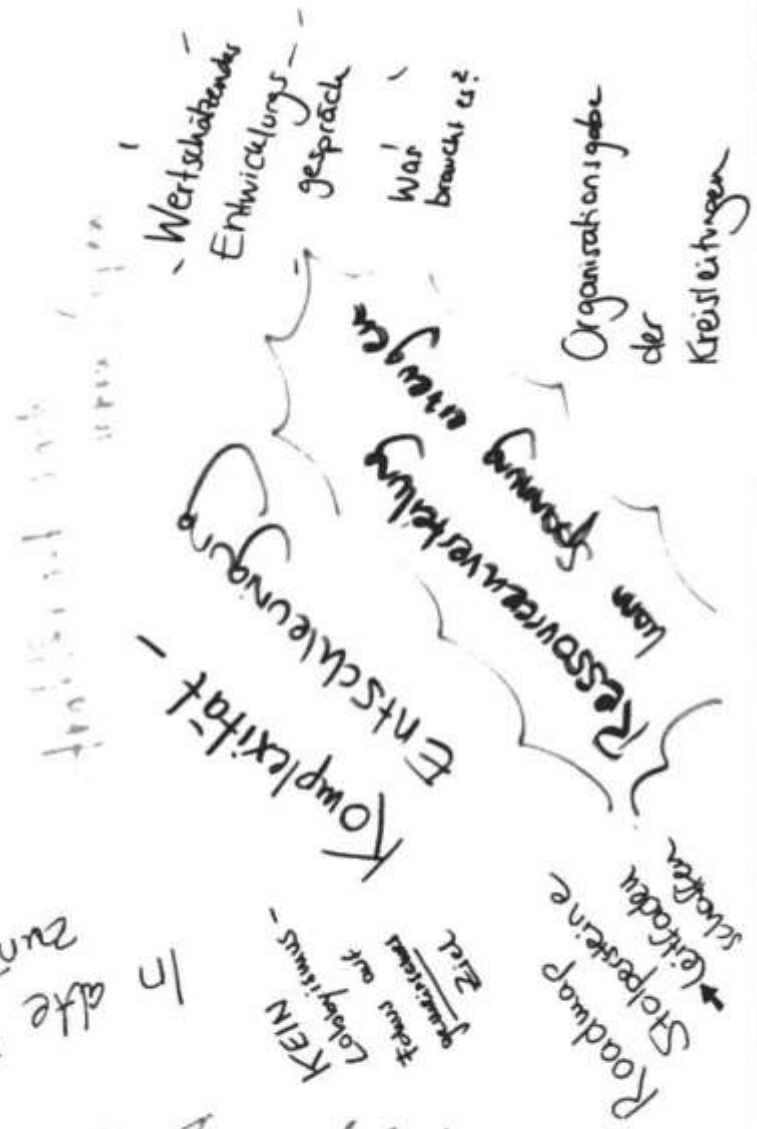 Wertschätzendes
Entwicklungs-
gespräch
Was
braucht es?
Organisationsgabe
der
Kreisleitungen
Komplexität -
Entschleunigung
Ressourcenverteilung
kann
Spannung
erzeugen
KEIN
Lobbyismus -
Fokus auf
gemeinsames
Ziel
Roadmap
Stolpersteine
Leitfaden
schaffen
In
alte